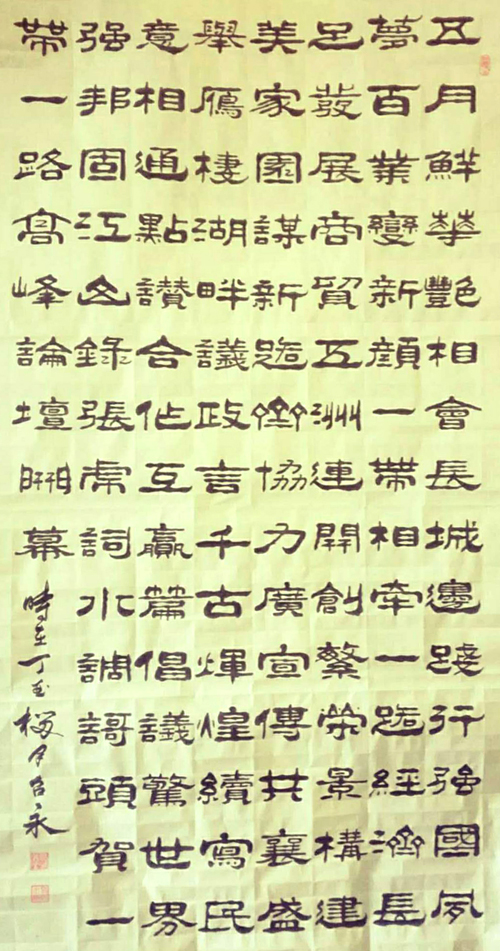 五月鮮華艷相會長城邊踐行强國夙
夢百業變新顔一帶相牽一路經濟長
足發展商貿五洲連開創繁榮景構建
美家園謀新路齊協力廣宣傳共襄盛
舉鴈棲湖畔議政言千古煇煌續寫民
意相通點讚合作互贏篇倡議驚世界
强邦固江山錄張虎詞水調謌頭賀一
帶一路高峰論壇開幕
時在丁酉榴月永